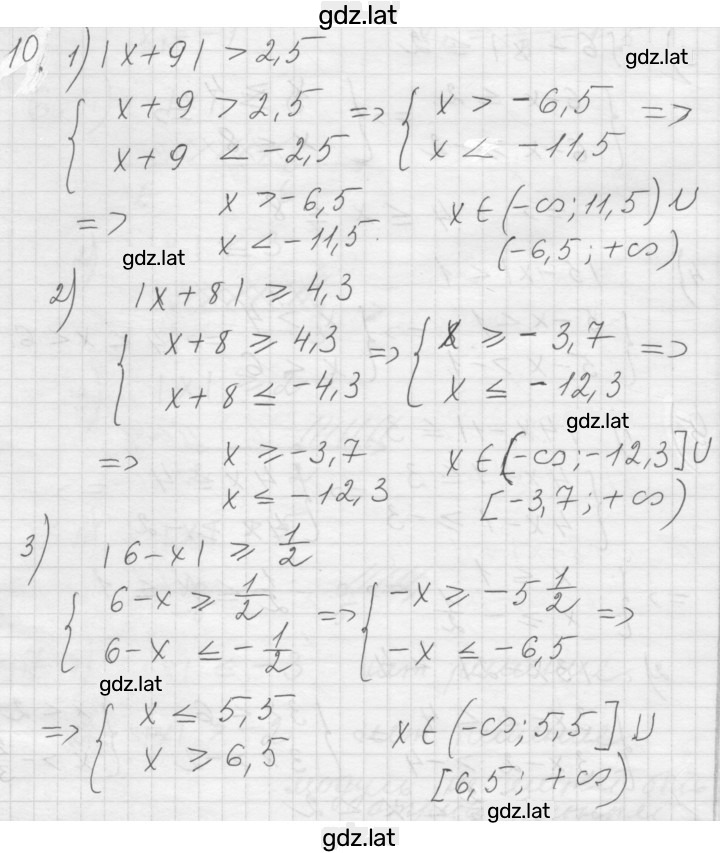 gdz.lat
10. 1) |x+9| > 2,5
gdz.lat
{ x+9 > 2,5 => { x > -6,5 =>
x+9 < -2,5 x < -11,5
=> x > -6,5 x ∈ (-∞; 11,5) ∪
x < -11,5. (-6,5; +∞)
gdz.lat
2) |x+8| ⩾ 4,3
{ x+8 ⩾ 4,3 => { x ⩾ -3,7 =>
x+8 ≤ -4,3 x ≤ -12,3
gdz.lat
=> x ⩾ -3,7 x ∈ (-∞; -12,3] ∪
x ≤ -12,3 [-3,7; +∞)
3) |6-x| ⩾ 1/2
{ 6-x ⩾ 1/2 => { -x ⩾ -5 1/2 =>
6-x ≤ -1/2 -x ≤ -6,5
gdz.lat
=> { x ≤ 5,5 x ∈ (-∞; 5,5] ∪
x ⩾ 6,5 [6,5; +∞)
gdz.lat
gdz.lat